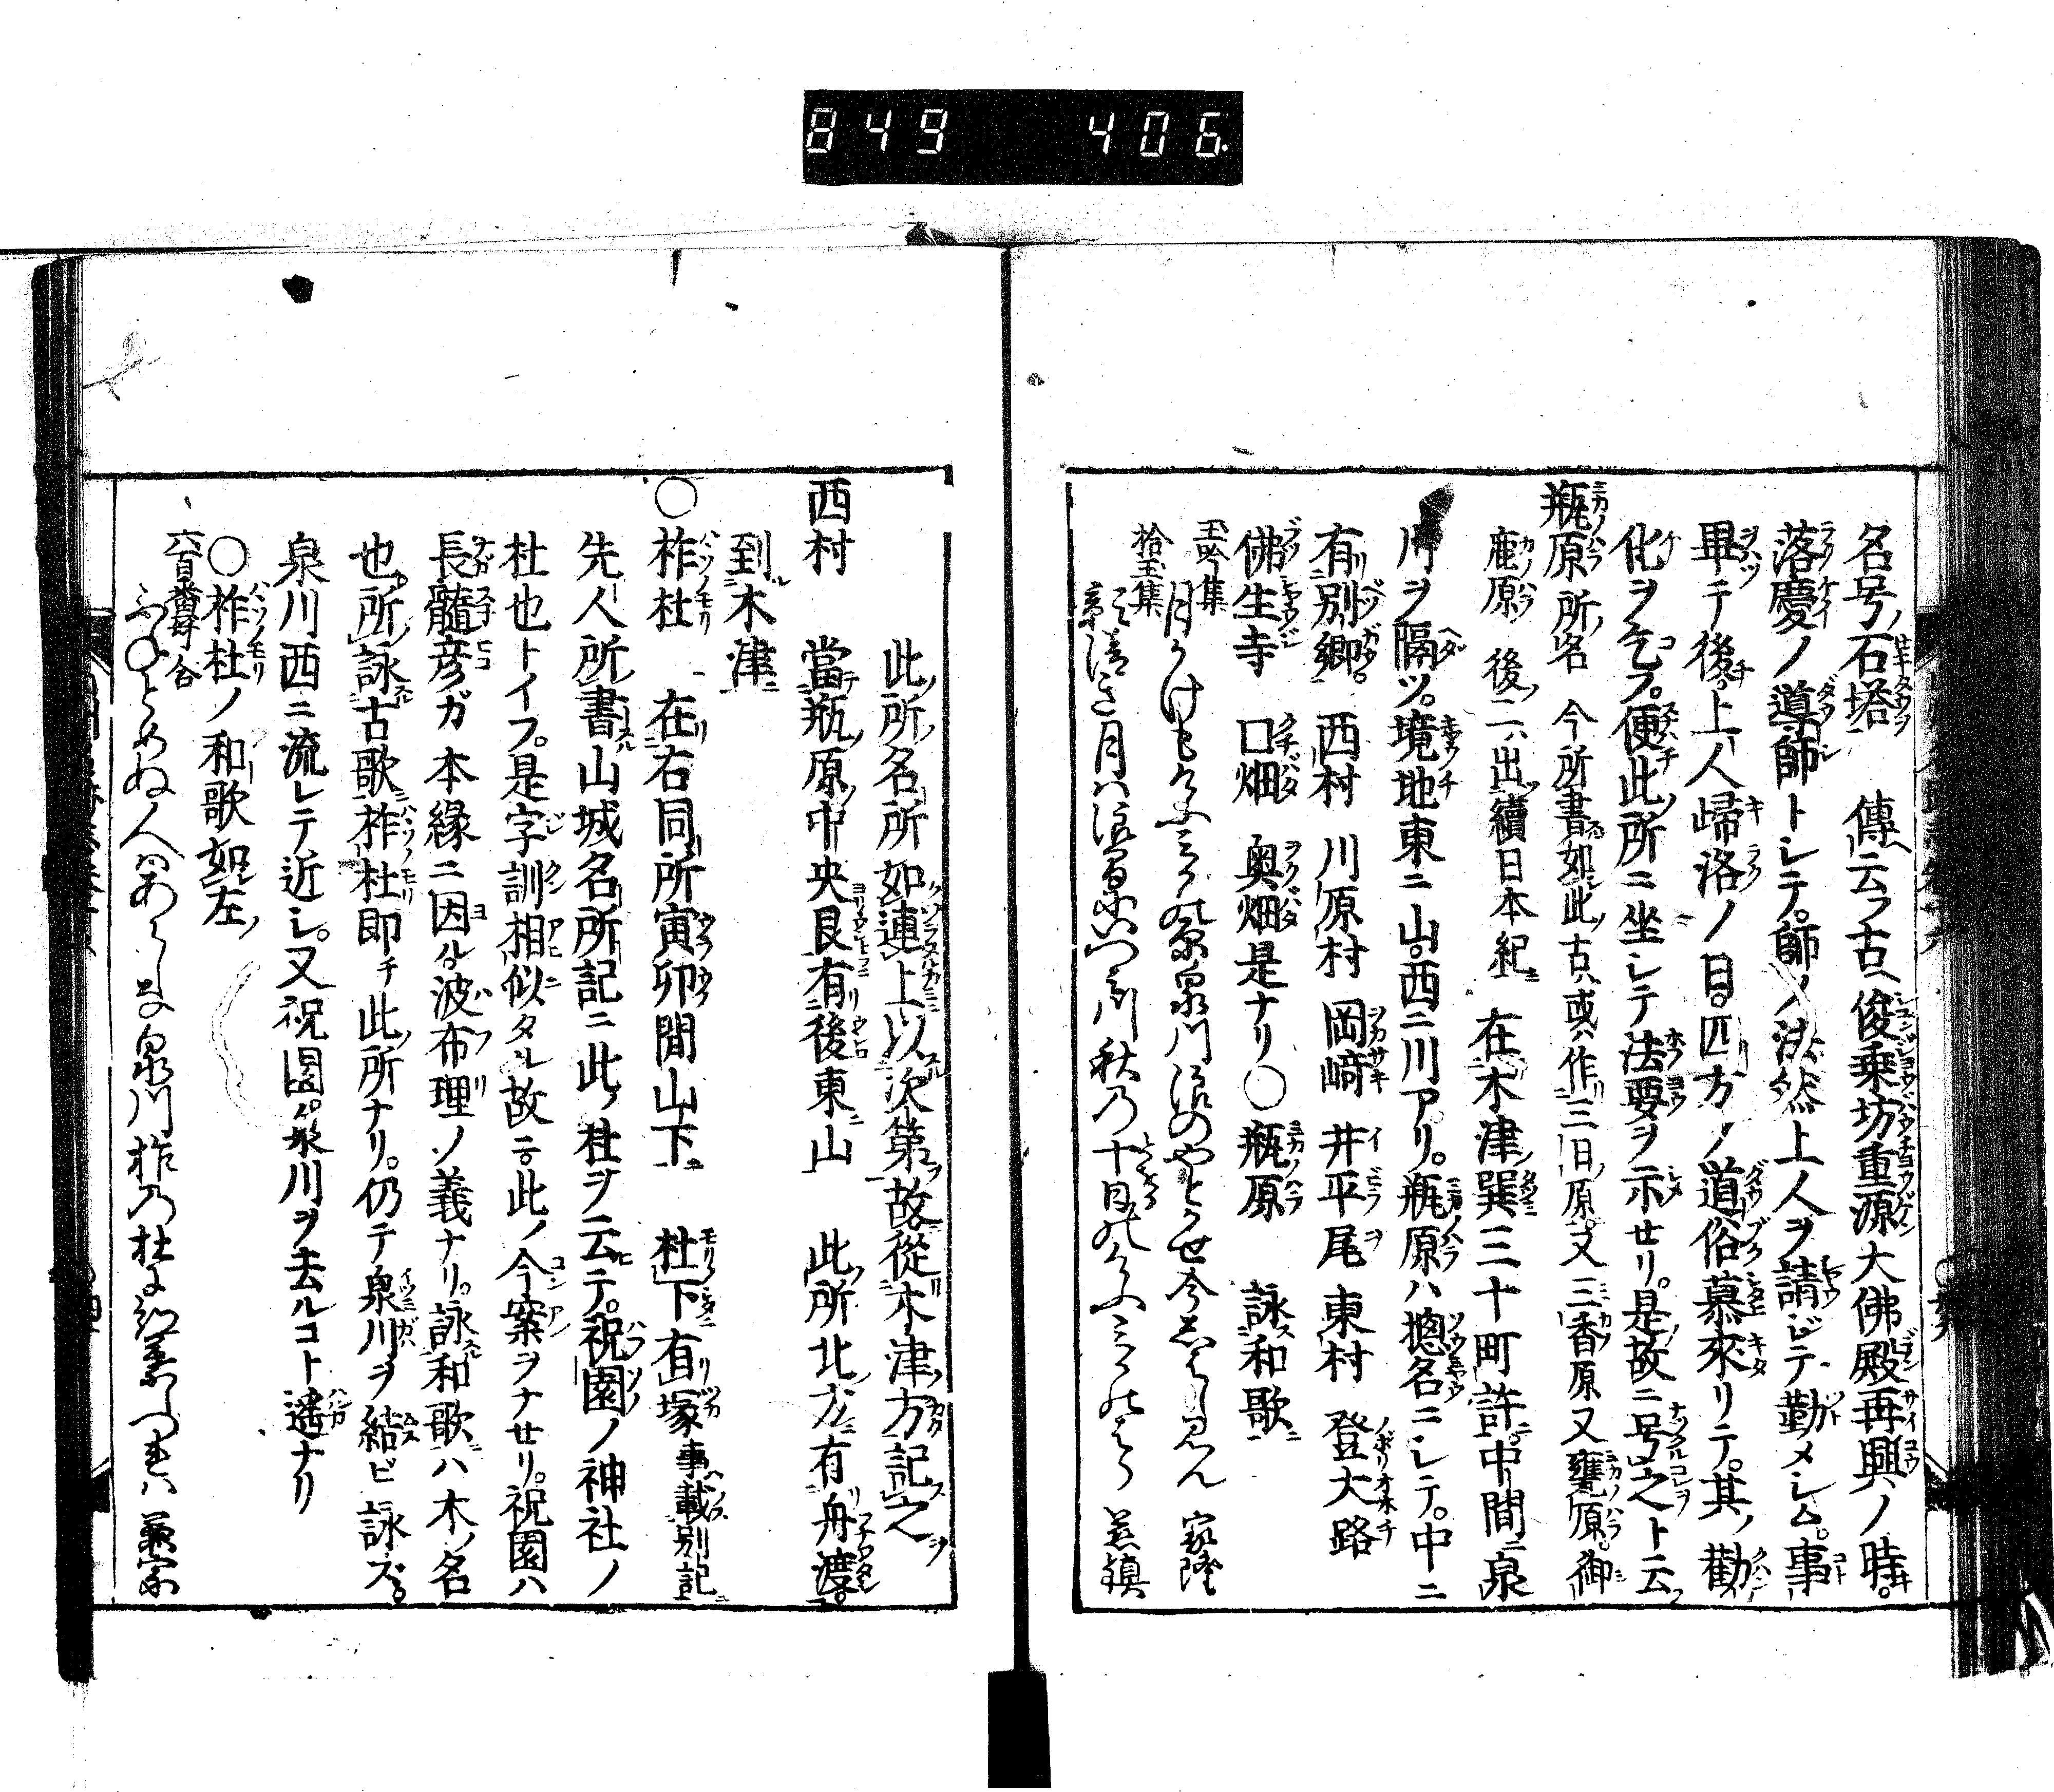 849 406
名号ノ石塔 傳云フ古ヘ俊乗坊重源大佛殿再興ノ時。
落慶ノ導師トシテ。師ノ法然上人ヲ請ジテ勤メシム。事
畢テ後チ上人歸洛ノ日。四方ノ道俗慕來リテ。其ノ勸
化ヲ乞フ。便チ此ノ所ニ坐シテ法要ヲ示セリ。是故ニ号之ト云フ
瓶原 所ノ名 今所書如此古ハ或ハ作三日ノ原又三香原又甕原御
鹿原 後ノ二ハ出續日本紀ニ 在木津ノ巽三十町許中間ニ泉
川ヲ隔ツ。境地東ニ山。西ニ川アリ。瓶原ハ摠名ニシテ。中ニ
有別郷 西村 川原村 岡﨑 井平尾 東村 登大路
佛生寺 口畑 奥畑是ナリ○瓶原 詠和歌
玉吟集
月かけもけふみかの原泉川浪のやとかせ今 家隆
拾玉集
清き月は 川秋の十日のけふみかのはら 慈鎮
此ノ所名所如連上以次第故從木津ノ方記之
西村 當瓶原ノ中央艮有後東山 此ノ所北ノ方有舟渡
到木津
○柞杜 在右同所寅卯間山下 杜ノ下有塚事載別記
先人所書山城名所記ニ此ノ杜ヲ云テ。祝園ノ神社ノ
杜也トイフ。是字訓相似タル故ニ此ノ今案ヲナセリ。祝園ハ
長髓彦ガ本縁ニ因ル。波布理ノ義ナリ。詠和歌ハ木ノ名
也。所詠古歌柞杜即チ此ノ所ナリ。仍テ泉川ヲ結ビ詠ズ。
泉川西ニ流レテ近シ。又祝園ハ泉川ヲ去ルコト遙ナリ
○柞杜ノ和歌如左ノ
六百番哥合
とめぬ人はあらしな泉川柞の杜に紅葉しつれは 兼宗